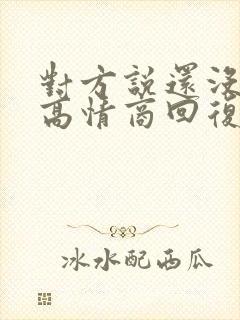 對方說還沒
高情商回復
冰水配西瓜